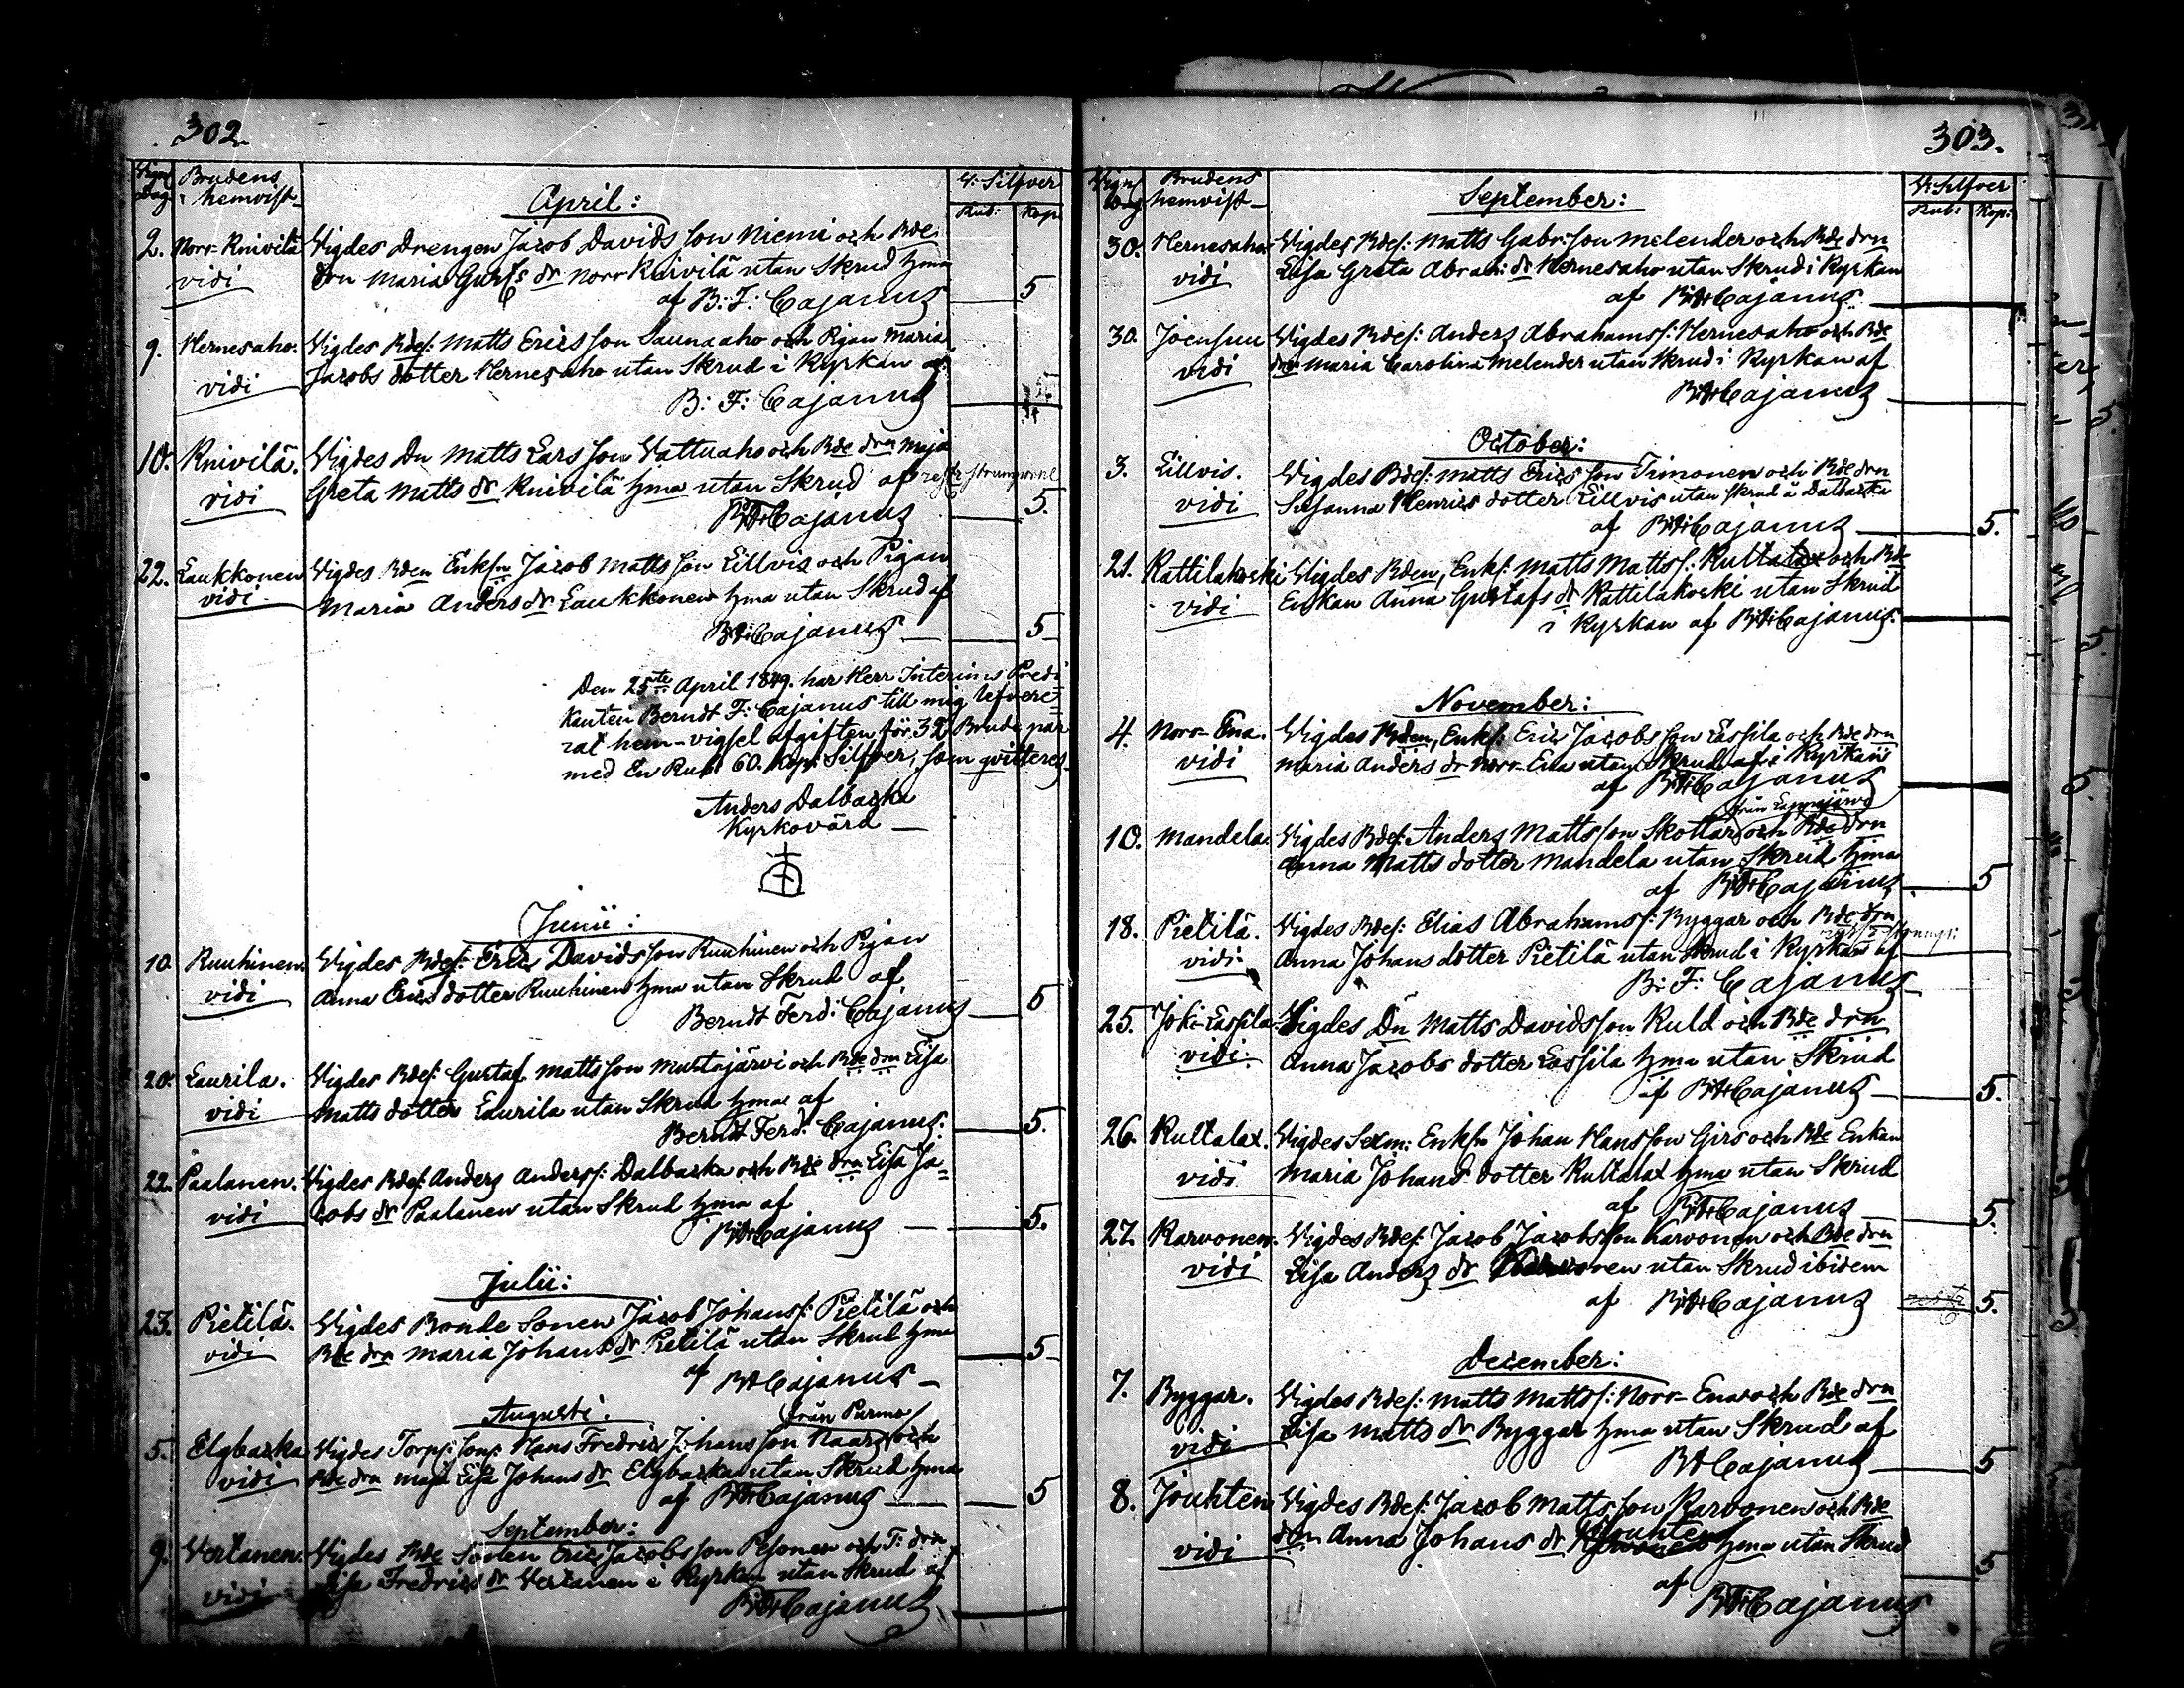 302.
Vigs Dag
Brudens hemvist
W: Silfver
Rub: Kop.
April:
2. Norr-Knivilä Vigdes Drengen Jacob Davids son Niemi och Bde
vidi drn Maria Gust:s dr Norr Knivilä utan Skrud hma
af B: F: Cajanus 5
9. Hernesaho. Vigdes Bdes: Matts Erics son Saunaaho och Pigan Maria
vidi Jacobs dotter Hernesaho utan Skrud i Kyrkan af
B: F: Cajanus
10. Knivilä. Vigdes Dn Matts Lars son Vattuaho och Bde drn Maja
vidi Greta Matts dr Knivilä hma utan Skrud af
B:F:Cajanus 5.
22. Laukkonen Vigdes Bden Enkm Jacob Matts son Lillvis och Pigan
vidi Maria Anders dr Laukkonen hma utan Skrud af
B:F:Cajanus 5
Den 25te April 1849. har Herr Interims Predi
kanten Berndt F: Cajanus till mig lefvere
rat hem-vigsel afgiften för 32 Brude par
med En Rub: 60. Kop: Silfver, som qvitteras
Anders Dalbacka
Kyrkovärd
Junii:
10. Ruuhinen. Vigdes Bdes: Eric Davids son Ruuhinen och Pigan
vidi Anna Erics dotter Ruuhinen hma utan Skrud af
Berndt Ferd: Cajanus 5
20. Laurila. Vigdes Bdes: Gustaf Matts son Mustajärvi och Bde drn Lisa
vidi Matts dotter Laurila utan Skrud hma af
Berndt Ferd: Cajanus. 5.
22. Paalanen. Vigdes Bdes: Anders Anderss: Dalbacka och Bde drn Lisa Ja=
vidi cobs dr Paalanen utan Skrud hma af
B:F:Cajanus 5.
Julii:
23. Pietilä. Vigdes Bonde Sonen Jacob Johanss: Pietilä och
vidi Bde drn Maria Johans dr Pietilä utan Skrud hma
af B:F:Cajanus 5
Augusti.
från Purmo
5. Elgbacka Vigdes Torp: son: Hans Fredric Johans son Kaars och
vidi Bde drn Maja Lisa Johans dr Elgbacka utan Skrud hma
af B:F:Cajanus 5
September:
9. Vertanen. Vigdes Bde Sonen Eric Jacobs son Pesonen och T: drn
vidi Lisa Fredrics dr Vertanen i Kyrkan utan Skrud af
B:F:Cajanus
303.
Vigs Dag
Brudens hemvist
W: Silfver
Rub: Kop:
September:
30. Hernesaho. Vigdes Bdes: Matts Gabr: son Melender och Bde drn
vidi Lisa Greta Abrah: dr Hernesaho utan Skrud i Kyrkan
af B:F:Cajanus
30. Joensuu Vigdes Bdes: Anders Abrahamss: Hernesaho och Bde
vidi drn Maria Carolina Melender utan Skrud i Kyrkan af
B:F:Cajanus
October:
3. Lillvis. Vigdes Bdes: Matts Erics son Timonen och Bde drn
vidi Susanna Henrics dotter Lillvis utan Skrud å Dalbacka
af B:F:Cajanus 5.
21. Kattilakoski Vigdes Bden, Enks: Matts Matts s: Kultalax och Bde
vidi Enkan Anna Gustafs dr Kattilakoski utan Skrud
i Kyrkan af B:F:Cajanus.
November:
4. Norr-Ena. Vigdes Bden, Enks: Eric Jacobs son Lassila och Bde drn
vidi Maria Anders dr Norr-Ena utan Skrud af i Kyrkan
af B:F:Cajanus
från Lappajärvi
10. Mandela. Vigdes Bdes: Anders Matts son Skottar och Bde drn
Anna Matts dotter Mandela utan Skrud hma
af B:F:Cajanus 5
18. Pietilä. Vigdes Bdes: Elias Abrahams s: Byggar och Bde drn
vidi. Anna Johans dotter Pietilä utan Skrud i Kyrkan af
B: F: Cajanus
25. Joki-Lassila. Vigdes Dn Matts Davids son Kuld och Bde drn
vidi. Anna Jacobs dotter Lassila hma utan Skrud
af B:F:Cajanus 5.
26. Kultalax. Vigdes Sexm: Enkm Johan Hans son Girs och Bde Enkan
vidi Maria Johans dotter Kultalax hma utan Skrud
af B:F:Cajanus 5.
27. Karvonen. Vigdes Bdes: Jacob Jacobs son Karvonen och Bde drn
vidi Lisa Anders dr Karvonen utan Skrud ibidem
af B:F:Cajanus 5.
December:
7. Byggar. Vigdes Bdes: Matts Matts s: Norr-Ena och Bde drn
vidi Lisa Matts dr Byggar hma utan Skrud af
B:F:Cajanus 5
8. Jouhten Vigdes Bdes: Jacob Matts son Karvonen och Bde
vidi drn Anna Johans dr Jouhten hma utan Skrud
af B:F:Cajanus 5